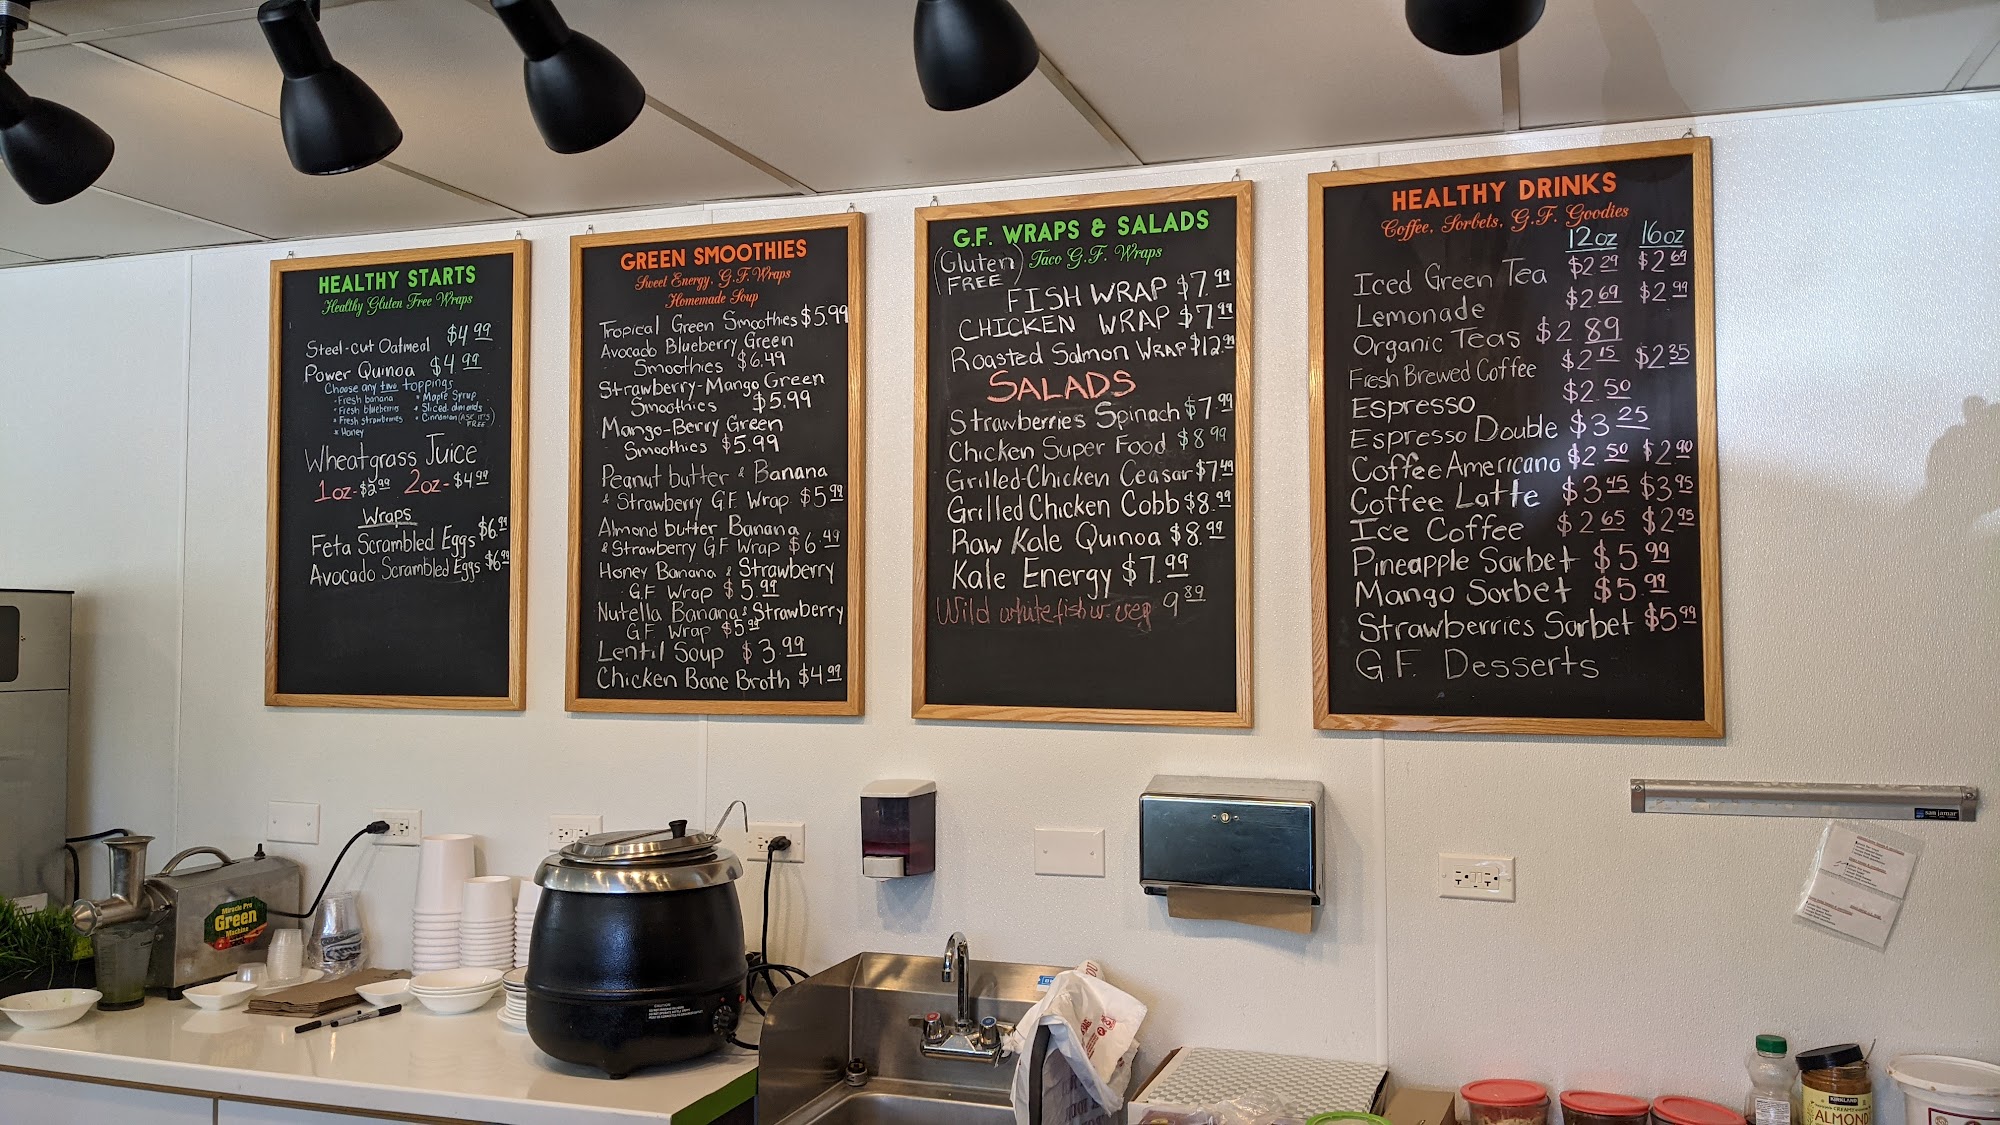 HEALTHY STARTS
Healthy Gluten Free Wraps
Steel-cut Oatmeal $4.99
Power Quinoa $4.99
Choose any two toppings
- Fresh banana
- Fresh blueberries
- Fresh strawberries
* Honey
* Maple Syrup
* Sliced almonds
* Cinnamon (ASK IT'S FREE)
Wheatgrass Juice
1oz-$2.99 2oz-$4.99
Wraps
Feta Scrambled Eggs $6.99
Avocado Scrambled Eggs $6.99
GREEN SMOOTHIES
Sweet Energy, G.F. Wraps
Homemade Soup
Tropical Green Smoothies $5.99
Avocado Blueberry Green
Smoothies $6.49
Strawberry-Mango Green
Smoothies $5.99
Mango-Berry Green
Smoothies $5.99
Peanut butter & Banana
& Strawberry G.F. Wrap $5.99
Almond butter Banana
& Strawberry G.F. Wrap $6.49
Honey Banana & Strawberry
G.F. Wrap $5.99
Nutella Banana & Strawberry
G.F. Wrap $5.99
Lentil Soup $3.99
Chicken Bone Broth $4.99
G.F. WRAPS & SALADS
(Gluten FREE)
Taco G.F. Wraps
FISH WRAP $7.99
CHICKEN WRAP $7.99
Roasted Salmon WRAP $12.99
SALADS
Strawberries Spinach $7.99
Chicken Super Food $8.99
Grilled-Chicken Ceasar $7.49
Grilled Chicken Cobb $8.99
Raw Kale Quinoa $8.99
Kale Energy $7.99
Wild whitefish w. veg 9.89
HEALTHY DRINKS
Coffee, Sorbets, G.F. Goodies
12oz 16oz
Iced Green Tea $2.29 $2.69
Lemonade $2.69 $2.99
Organic Teas $2.89
Fresh Brewed Coffee $2.15 $2.35
Espresso $2.50
Espresso Double $3.25
Coffee Americano $2.50 $2.90
Coffee Latte $3.45 $3.95
Ice Coffee $2.65 $2.95
Pineapple Sorbet $5.99
Mango Sorbet $5.99
Strawberries Sorbet $5.99
G.F. Desserts
Miracle Pro
Green
Machine
san jamar
KIRKLAND
CREAMY
ALMOND